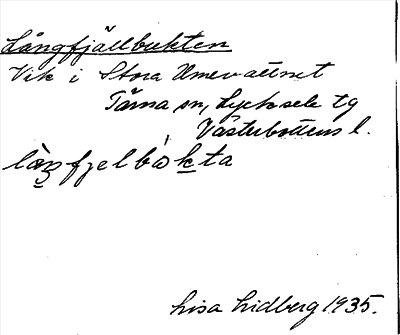 Långfjällbukten
Vik i Stora Umevattnet
Tärna sn, Lycksele tg
Västerbottens l.
làŋfjelbòkta
Lisa Lidberg 1935.